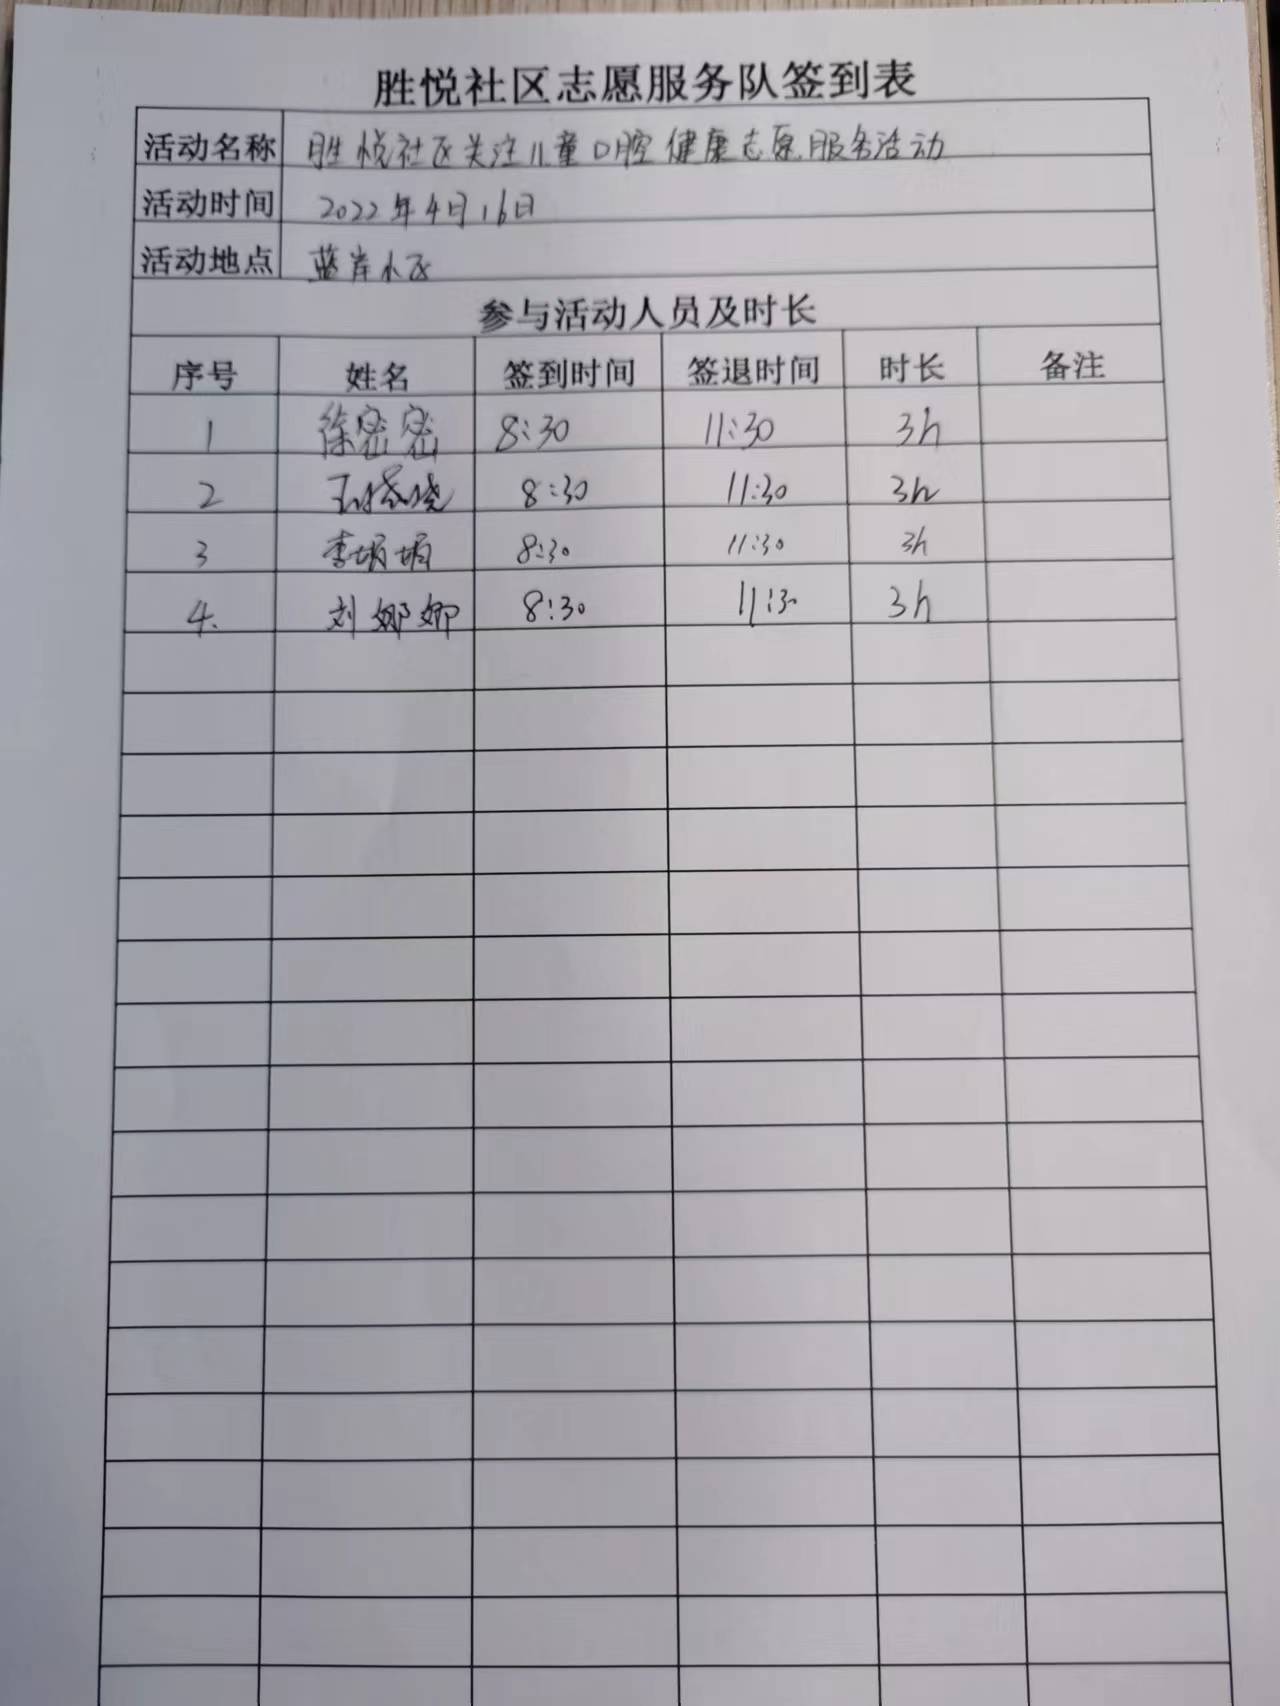 胜悦社区志愿服务队签到表
活动名称 胜悦社区关注儿童口腔健康志愿服务活动
活动时间 2022年4月16日
活动地点 蓝岸小区
参与活动人员及时长
序号 姓名 签到时间 签退时间 时长 备注
1 徐密密 8:30 11:30 3h
2 8:30 11:30 3h
3 李娟娟 8:30 11:30 3h
4. 刘娜娜 8:30 11:30 3h